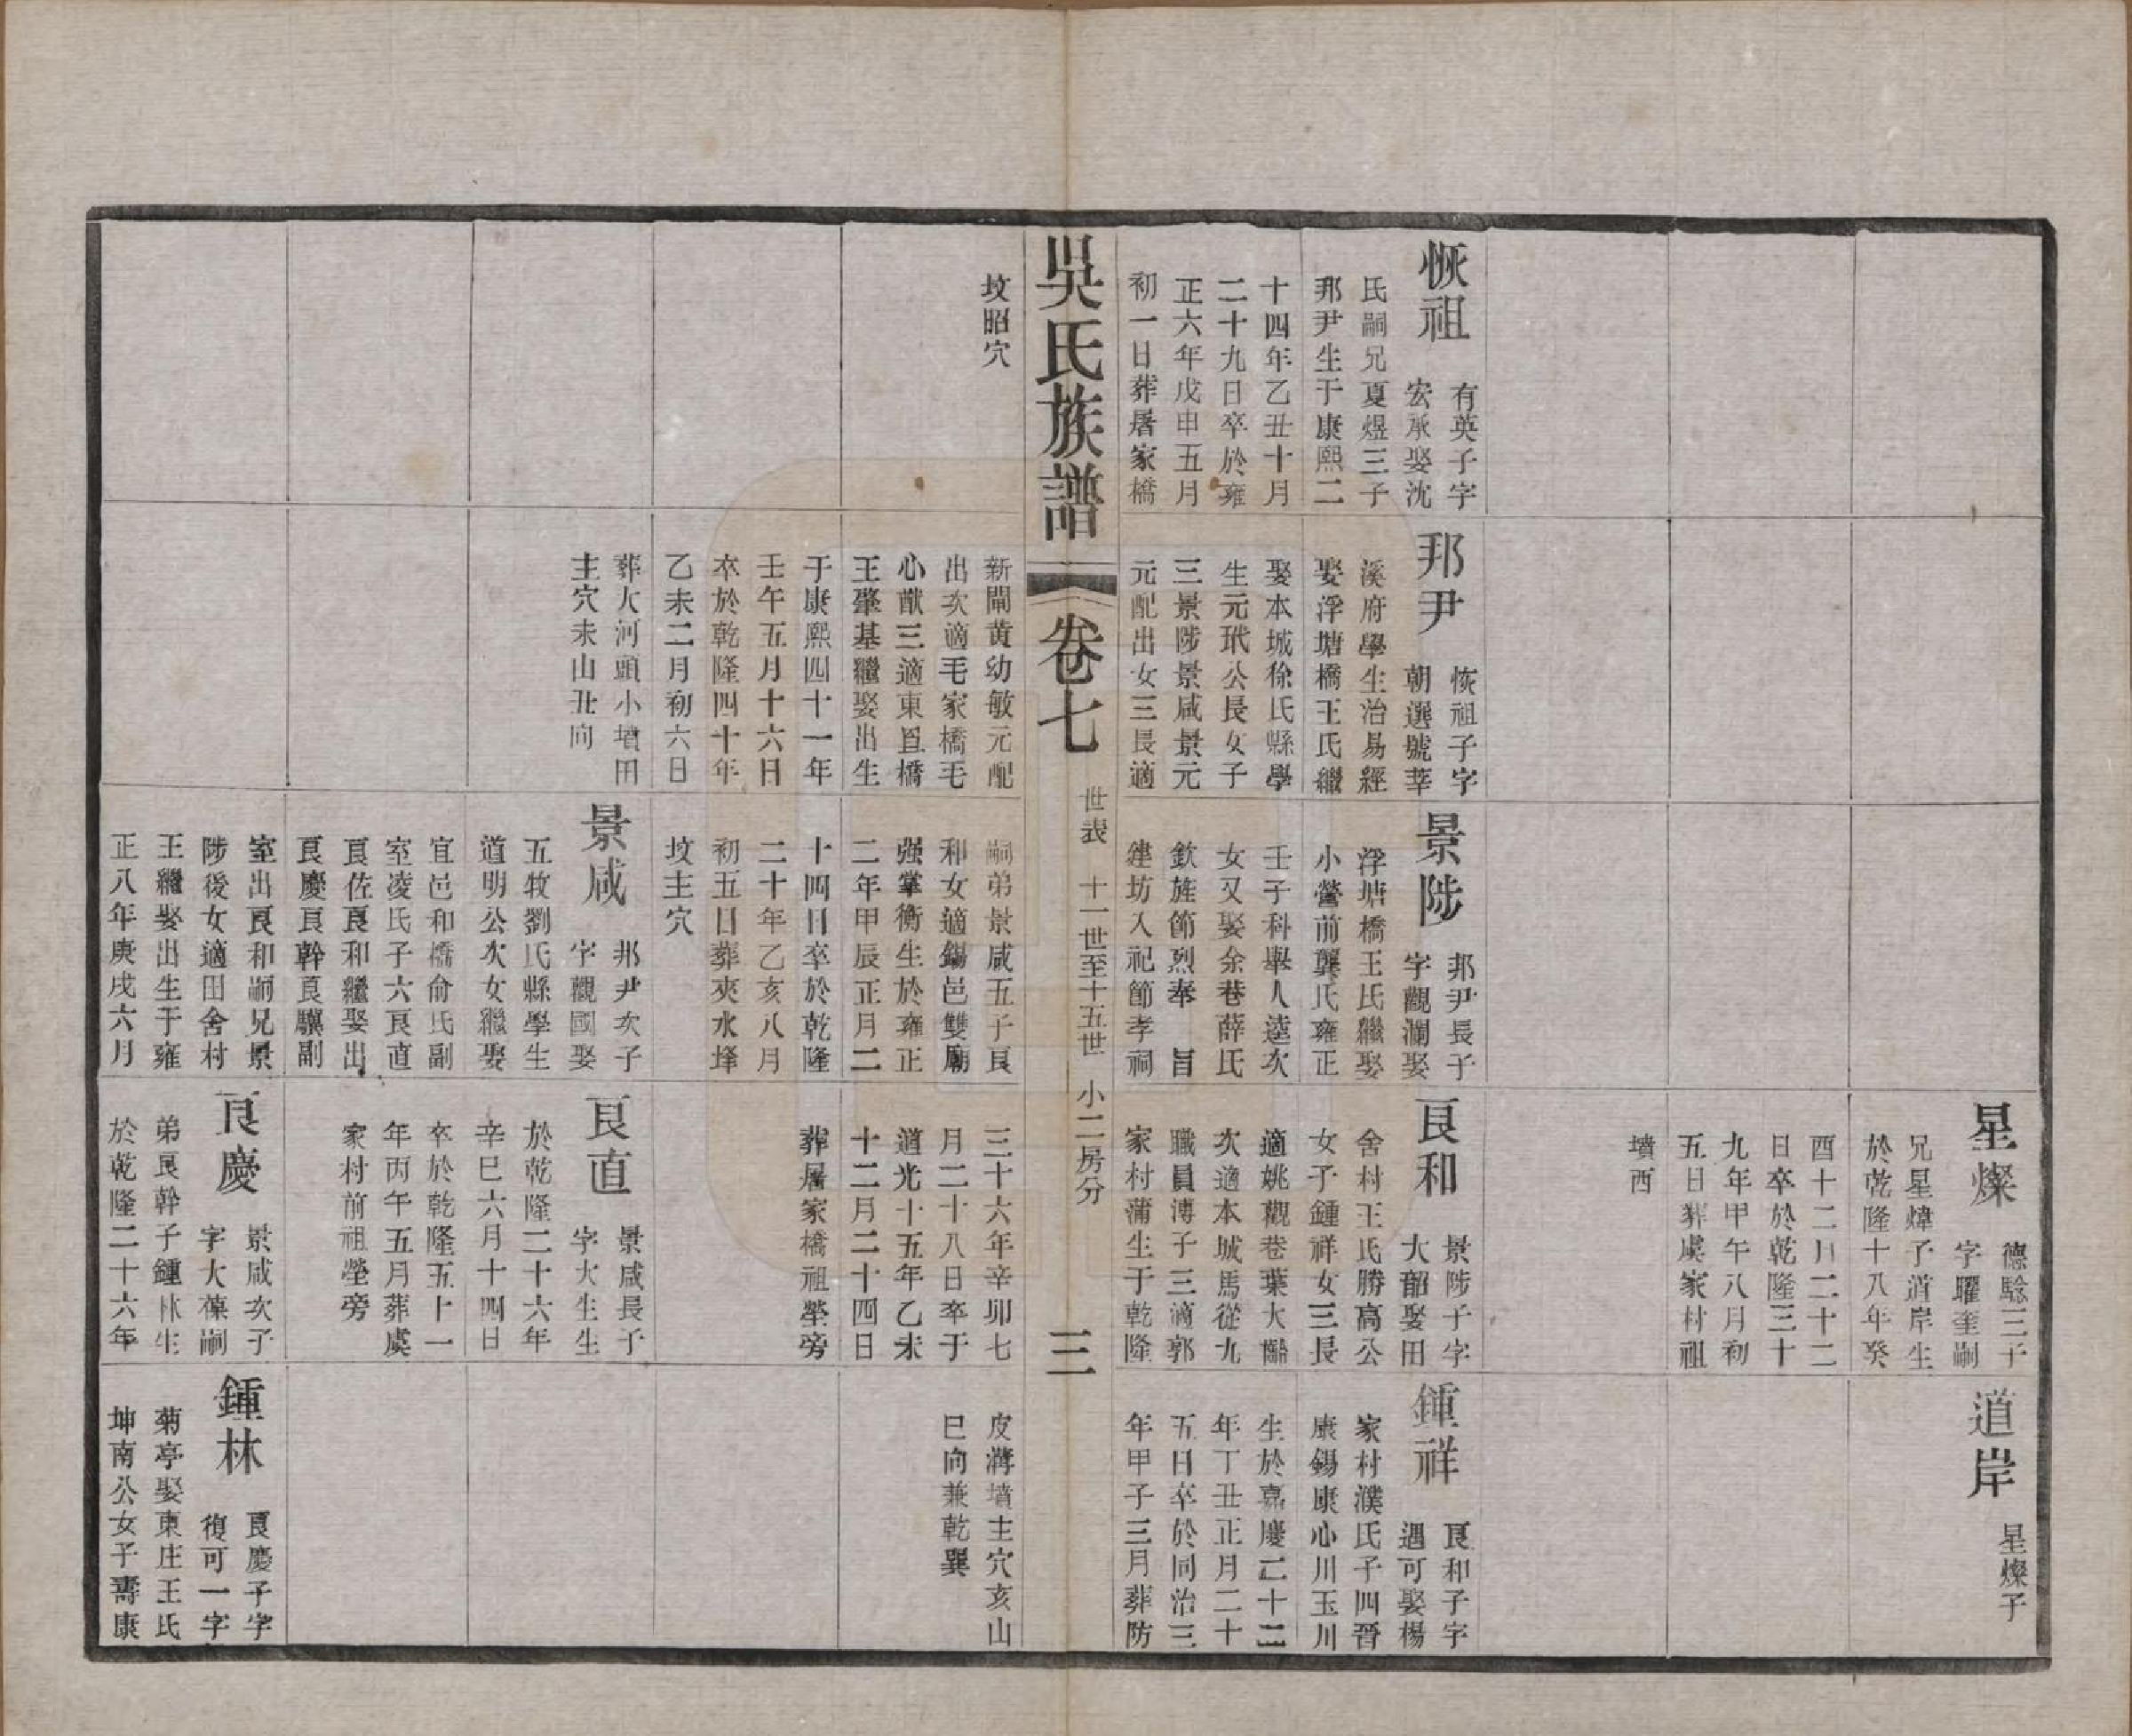 星燦
德騐三子
字曜奎嗣
兄星煒子道岸生
於乾隆十八年癸
酉十二月二十二
日卒於乾隆三十
九年甲午八月初
五日葬虞家村祖
墳西
道岸
星燦子
恢祖
有英子字
宏承娶沈
氏嗣兄夏煜三子
邦尹生于康熙二
十四年乙丑十月
二十九日卒於雍
正六年戊申五月
初一日葬屠家橋
坟昭穴
邦尹
恢祖子字
朝選號莘
溪府學生治易經
娶浮塘橋王氏繼
娶本城徐氏縣學
生元玳公長女子
三景陟景咸景元
元配出女三長適
新閘黄幼敏元配
出次適毛家橋毛
心猷三適東亘橋
王肇基繼娶出生
于康熙四十一年
壬午五月十六日
卒於乾隆四十年
乙未二月初六日
葬大河頭小墳田
主穴未山丑向
景陟
邦尹長子
字觀瀾娶
浮塘橋王氏繼娶
小營前龔氏雍正
壬子科舉人逵次
女又娶余巷薛氏
欽旌節烈奉　旨
建坊入祀節孝祠
嗣弟景咸五子良
和女適錫邑雙廟
强掌衡生於雍正
二年甲辰正月二
十四日卒於乾隆
二十年乙亥八月
初五日葬夾水埄
坟主穴
良和
景陟子字
大韶娶田
舍村王氏勝高公
女子鍾祥女三長
適姚觀巷葉大酬
次適本城馬從九
職員溥子三適郭
家村蒲生于乾隆
三十六年辛卯七
月二十八日卒于
道光十五年乙未
十二月二十四日
葬屠家橋祖塋旁
鍾祥
良和子字
遇可娶楊
家村濮氏子四晉
康錫康心川玉川
生於嘉慶二十二
年丁丑正月二十
五日卒於同治三
年甲子三月葬防
皮溝墳主穴亥山
巳向兼乾巽
吳氏族譜
卷七
世表
十一世至十五世
小二房分
三
景咸
邦尹次子
字觀國娶
五牧劉氏縣學生
道明公次女繼娶
宜邑和橋俞氏副
室凌氏子六良直
良佐良和繼娶出
良慶良幹良驥副
室出良和嗣兄景
陟後女適田舍村
王繼娶出生于雍
正八年庚戌六月
良直
景咸長子
字大生生
於乾隆二十六年
辛巳六月十四日
卒於乾隆五十一
年丙午五月葬虞
家村前祖塋旁
良慶
景咸次子
字大葆嗣
弟良幹子鍾林生
於乾隆二十六年
鍾林
良慶子字
復可一字
菊亭娶東庄王氏
坤南公女子壽康